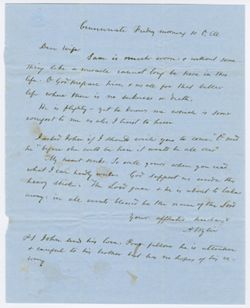 Cincinnati Friday morning 10 O.C.
Dear wife
Sam is much worse & without some
thing like a miracle cannot long be here in this
life. O God prepare him & us all for that better
life where there is no sickness or death.
He is flighty - yet he knows me which is some
comfort to me as also I trust to him.
I asked John if I should send you to come. O said
he " before she will be here it would be all over"
My heart sinks. So will yours when you read
what I can hardly write. God support us under the
heavy stroke. The Lord gave & he is about to take
away: in all events blessed be the name of the Lord
Your affectionate husband
PS John sends his love. Poor fellow he is attentive
& careful to his brother but has no hopes of his re-
covery